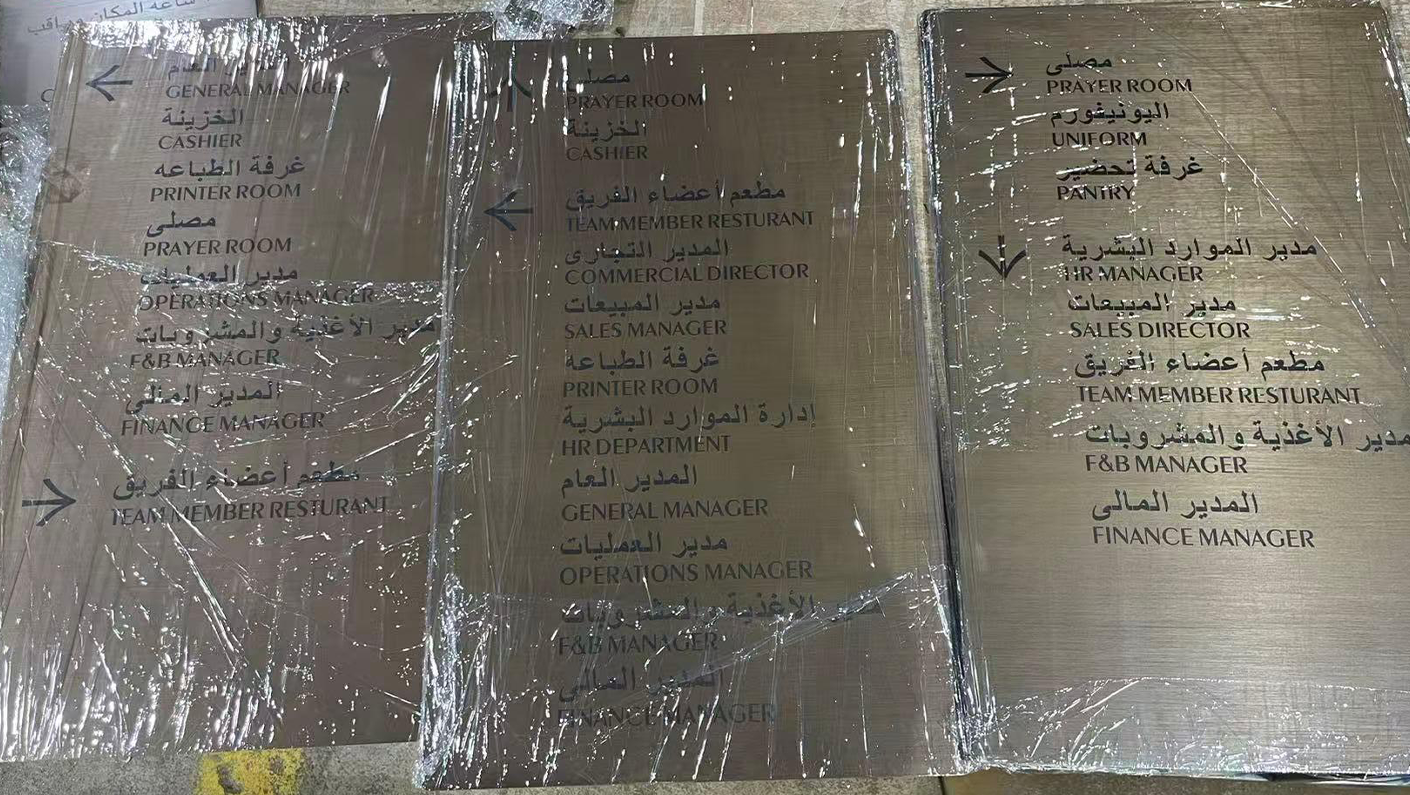 المدير العام
GENERAL MANAGER
الخزينة
CASHIER
غرفة الطباعه
PRINTER ROOM
مصلى
PRAYER ROOM
مدير العمليات
OPERATIONS MANAGER
مدير الأغذية والمشروبات
F&B MANAGER
المدير المالى
FINANCE MANAGER
مطعم أعضاء الفريق
TEAM MEMBER RESTURANT
مصلى
PRAYER ROOM
الخزينة
CASHIER
مطعم أعضاء الفريق
TEAM MEMBER RESTURANT
المدير التجارى
COMMERCIAL DIRECTOR
مدير المبيعات
SALES MANAGER
غرفة الطباعه
PRINTER ROOM
إدارة الموارد البشرية
HR DEPARTMENT
المدير العام
GENERAL MANAGER
مدير العمليات
OPERATIONS MANAGER
مدير الأغذية والمشروبات
F&B MANAGER
المدير المالى
FINANCE MANAGER
مصلى
PRAYER ROOM
اليونيفورم
UNIFORM
غرفة تحضير
PANTRY
مدير الموارد البشرية
HR MANAGER
مدير المبيعات
SALES DIRECTOR
مطعم أعضاء الفريق
TEAM MEMBER RESTURANT
مدير الأغذية والمشروبات
F&B MANAGER
المدير المالى
FINANCE MANAGER